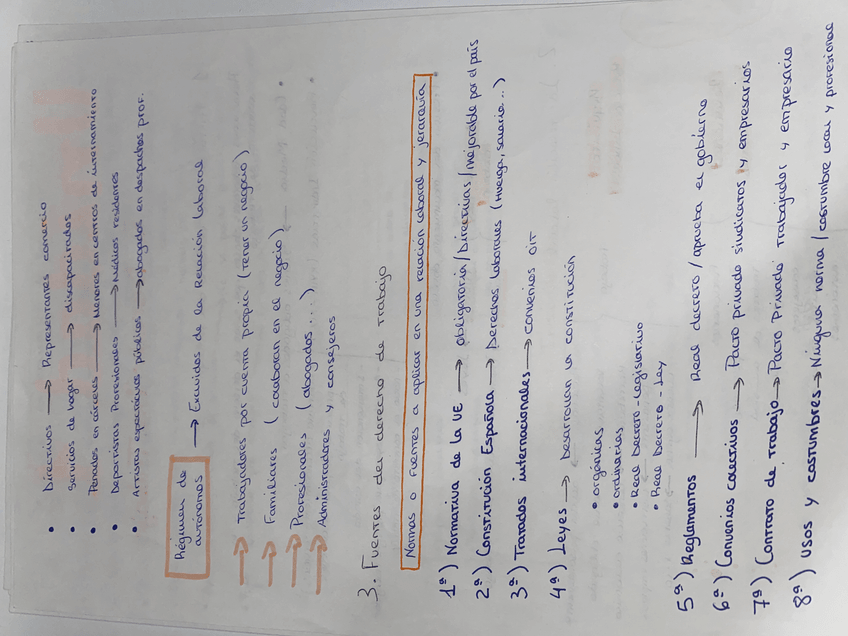 • Directivos → Representantes comercio
• Servicios de hogar → discapacitados
• Penados en cárceles → Menores en centros de internamiento
• Deportistas Profesionales → Médicos residentes
• Artistas espectáculos públicos → abogados en despachos prof.
Régimen de → Excluidos de la Relación laboral
autónomos
→ Trabajadores por cuenta propia (tener un negocio)
→ Familiares (colaboran en el negocio)
→ Profesionales (abogados...)
→ Administradores y consejeros
3. Fuentes del derecho de Trabajo
Normas o Fuentes a aplicar en una relación laboral y jerarquía
1º) Normativa de la UE → obligatoria / Directivas / mejorable por el país
2º) Constitución Española → Derechos laborales (Huelga, salario...)
3º) Tratados internacionales → convenios OIT
4º) Leyes → Desarrollan la constitución
• orgánicas
• ordinarias
• Real Decreto-legislativo
• Real Decreto-Ley
5º) Reglamentos → Real decreto / aprueba el gobierno
6º) Convenios colectivos → Pacto privado sindicatos y empresarios
7º) Contrato de trabajo → Pacto Privado trabajador y empresario
8º) Usos y costumbres → Ninguna norma / costumbre local y profesional